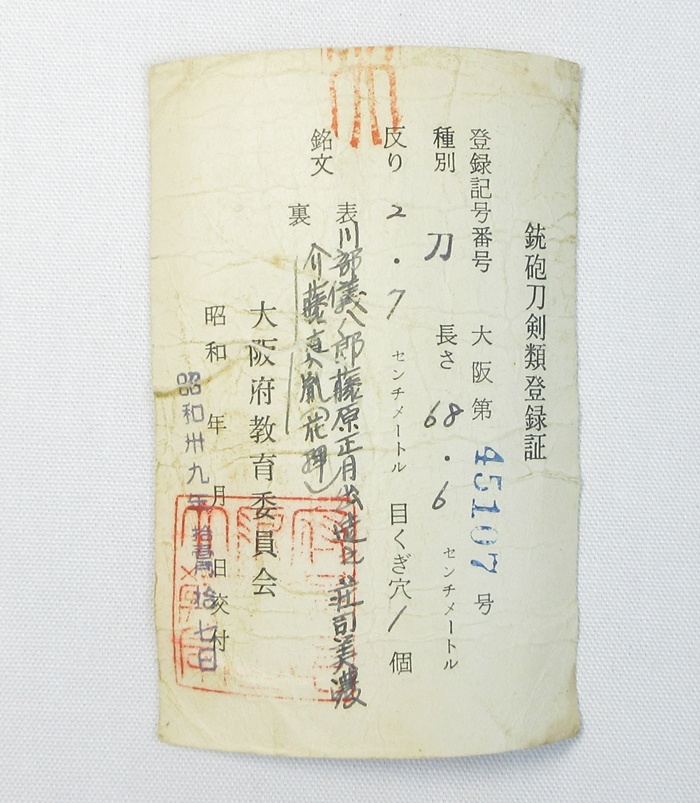 銃砲刀剣類登録証
登録記号番号 大阪第 45107 号
種別 刀 長さ 68.6 センチメートル
反り 2.7 センチメートル 目くぎ穴 1 個
銘文 表 川部儀八郎藤原正月公造之 荘司美濃
裏 介藤直胤(花押)
大阪府教育委員会
昭和 年 月 日交付
昭和卅九年 拾七日